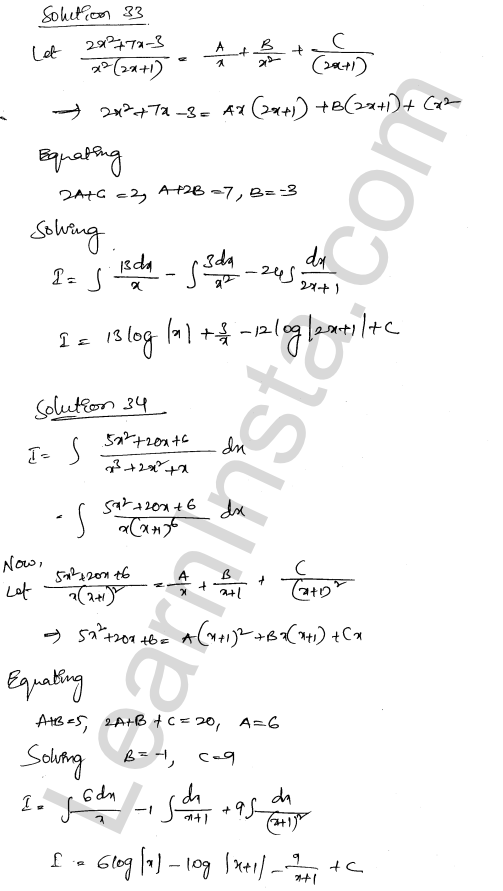 Solution 33
Let (2x²+7x-3)/(x²(2x+1)) = A/x + B/x² + C/(2x+1)
→ 2x²+7x-3 = Ax(2x+1) + B(2x+1) + Cx²
Equating
2A+C = 2, A+2B = 7, B = -3
Solving
I = ∫ 13dx/x - ∫ 3dx/x² - 24∫ dx/(2x+1)
I = 13log|x| + 3/x - 12log|2x+1| + C
Solution 34
I = ∫ (5x²+20x+6)/(x³+2x²+x) dx
= ∫ (5x²+20x+6)/(x(x+1)⁶) dx
Now,
Let (5x²+20x+6)/(x(x+1)²) = A/x + B/(x+1) + C/(x+1)²
⇒ 5x²+20x+6 = A(x+1)² + Bx(x+1) + Cx
Equating
A+B=5, 2A+B+C=20, A=6
Solving B=-1, C=9
I = ∫ 6dx/x - 1∫ dx/(x+1) + 9∫ dx/(x+1)²
I = 6log|x| - log|x+1| - 9/(x+1) + C
LearnInsta.com